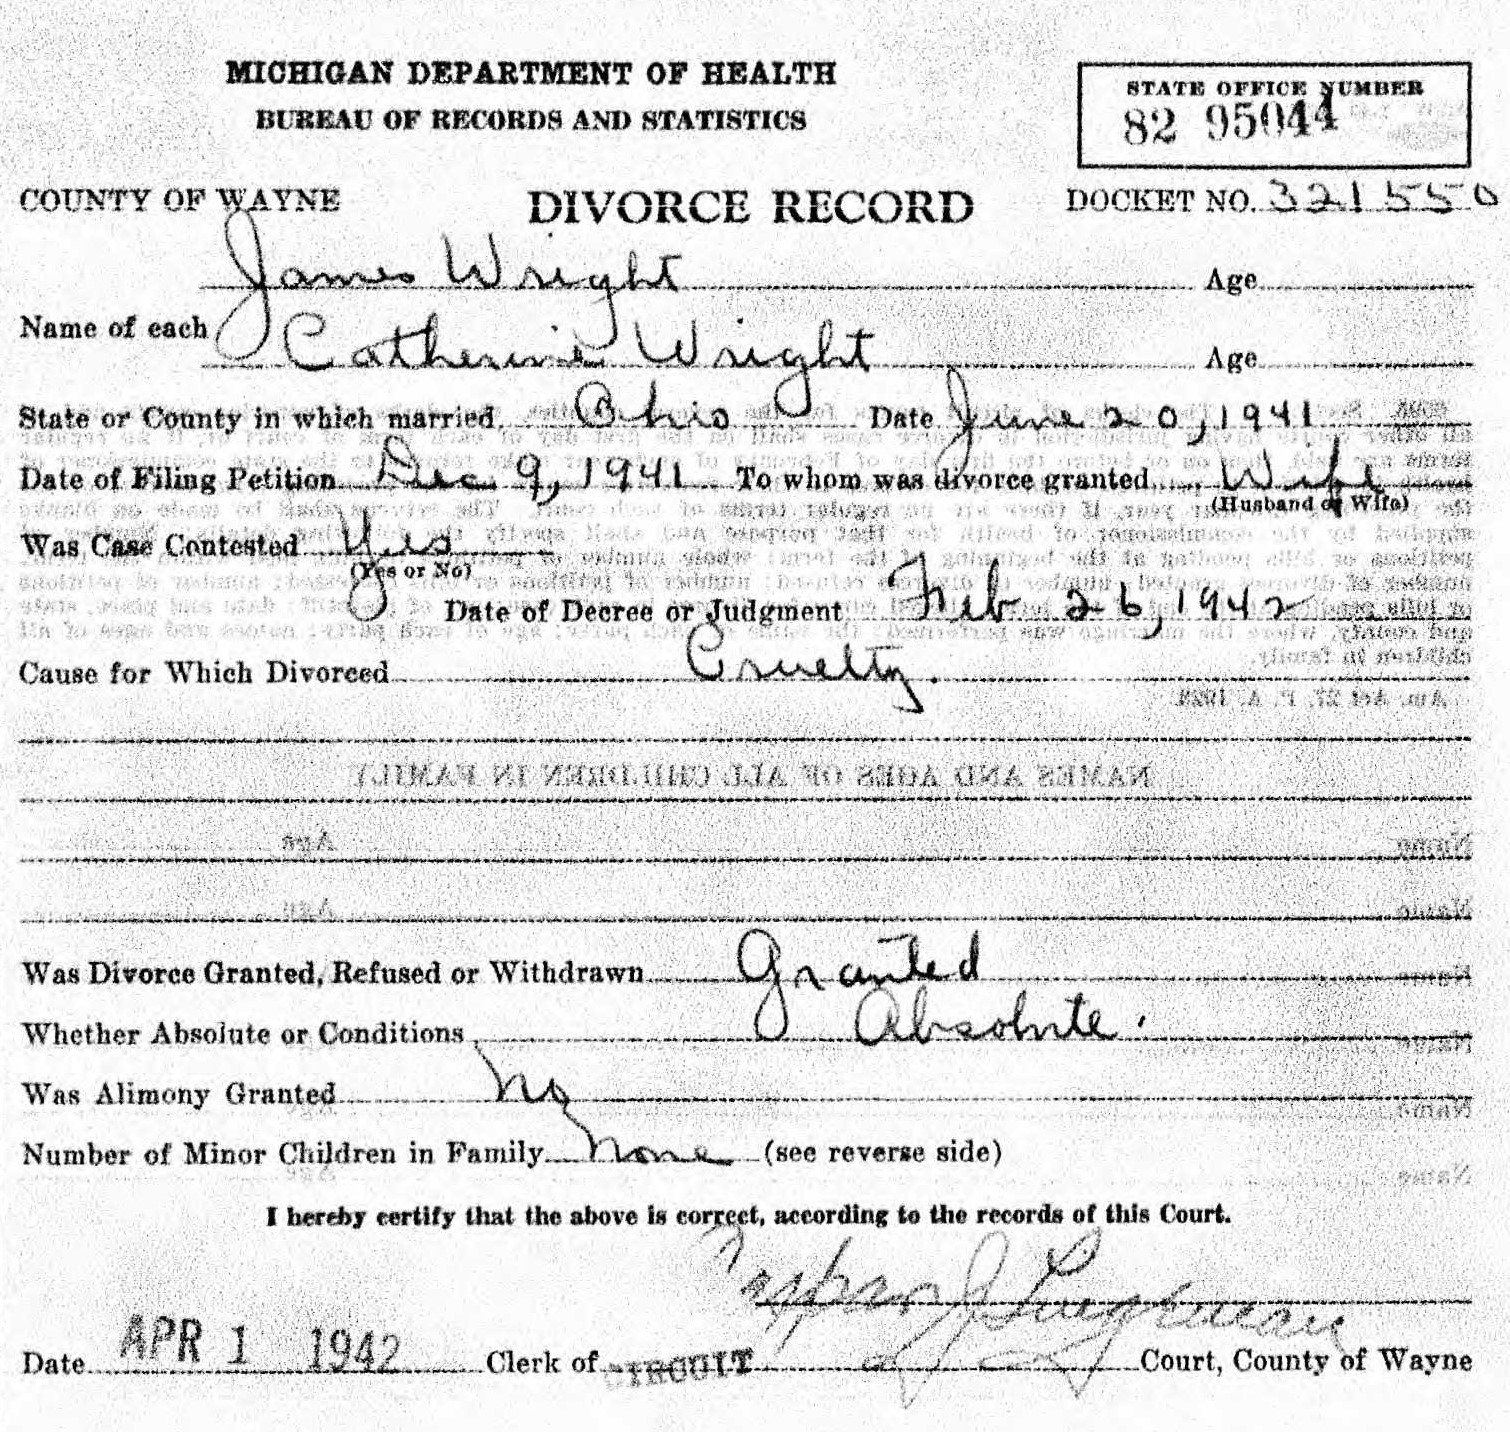 MICHIGAN DEPARTMENT OF HEALTH
BUREAU OF RECORDS AND STATISTICS
STATE OFFICE NUMBER
82 95044
COUNTY OF WAYNE DIVORCE RECORD DOCKET NO. 321550
James Wright Age
Name of each
Catherine Wright Age
State or County in which married Ohio Date June 20, 1941
Date of Filing Petition Dec 9, 1941 To whom was divorce granted Wife
(Husband or Wife)
Was Case Contested Yes
(Yes or No)
Date of Decree or Judgment Feb 26, 1942
Cause for Which Divorced Cruelty.
NAMES AND AGES OF ALL CHILDREN IN FAMILY
Was Divorce Granted, Refused or Withdrawn Granted
Whether Absolute or Conditions Absolute.
Was Alimony Granted No
Number of Minor Children in Family None (see reverse side)
I hereby certify that the above is correct, according to the records of this Court.
Date APR 1 1942 Clerk of CIRCUIT Court, County of Wayne